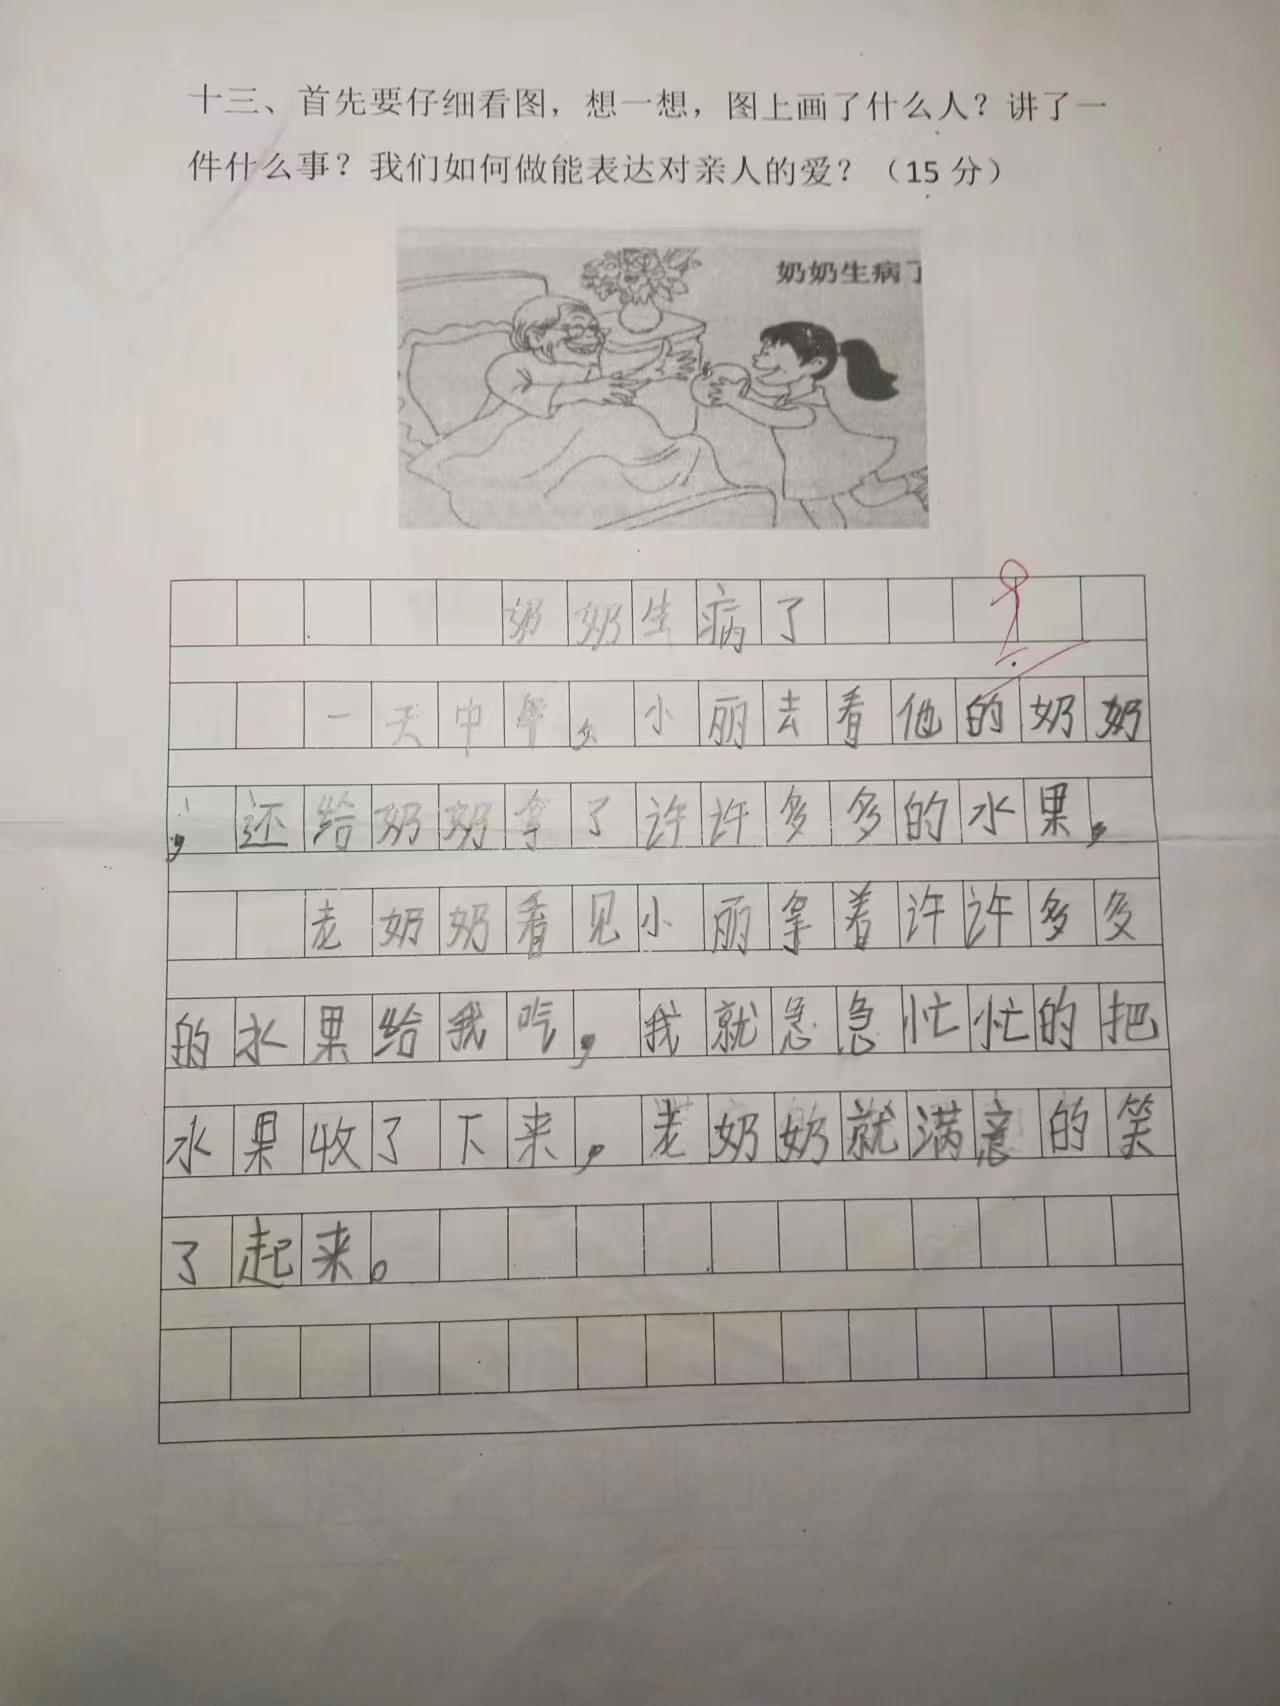 十三、首先要仔细看图，想一想，图上画了什么人？讲了一
件什么事？我们如何做能表达对亲人的爱？（15 分）
奶奶生病了
奶奶生病了
一天中午。小丽去看他的奶奶
，还给奶奶拿了许许多多的水果，
老奶奶看见小丽拿着许许多多
的水果给我吃，我就急急忙忙的把
水果收了下来，老奶奶就满意的笑
了起来。